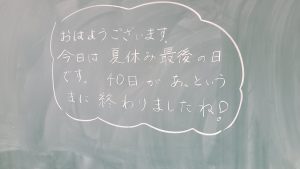 おはようございます。
今日は夏休み最後の日
です。40日があっという
まに終わりましたね!